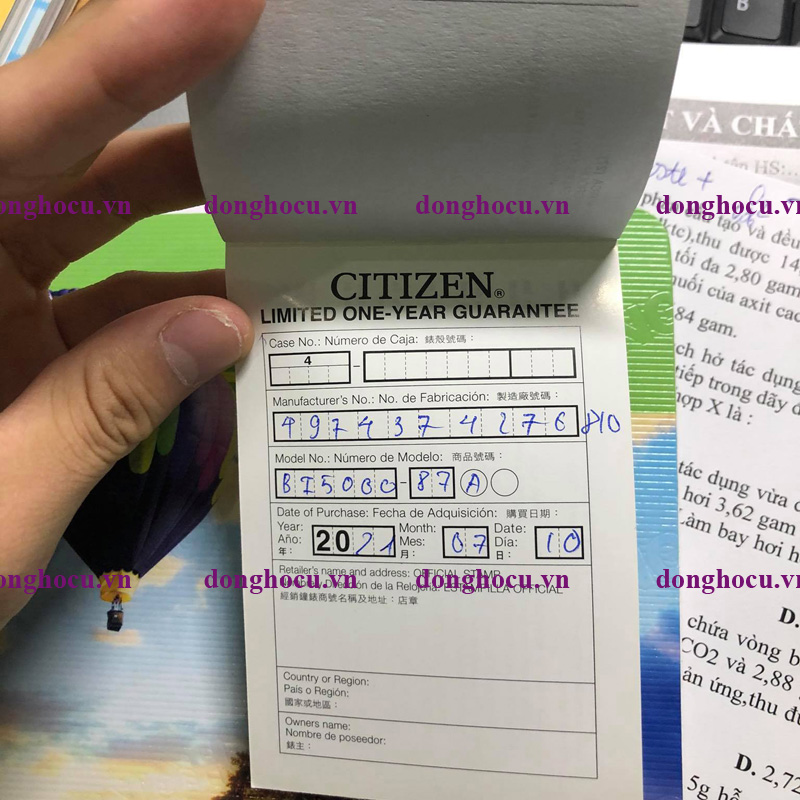 B
VÀ CHÁ
HS:...
tạo và đều
ktc),thu được 14
tối đa 2,80 gam
muối của axit cac
84 gam.
ch hở tác dụng
tiếp trong dãy đ
hợp X là :
donghocu.vn donghocu.vn donghocu.vn
CITIZEN®
LIMITED ONE-YEAR GUARANTEE
Case No.: Número de Caja: 錶殼號碼：
4 -
Manufacturer's No.: No. de Fabricación: 製造廠號碼：
4974374276810
Model No.: Número de Modelo: 商品號碼：
BI5000-87 A
Date of Purchase: Fecha de Adquisición: 購買日期：
Year: 2021 Month: 07 Date: 10
Año: Mes: Día:
年： 月： 日：
Retailer's name and address: OFFICIAL STAMP
Dirección de la Relojería: ESTAMPILLA OFFICIAL
經銷鐘錶商號名稱及地址：店章
donghocu.vn donghocu.vn donghocu.vn
Country or Region:
País o Región:
國家或地區：
Owners name:
Nombre de poseedor:
錶主：
tác dụng vừa
hơi 3,62 gam
Làm bay hơi h
D.
chứa vòng b
CO2 và 2,88
ản ứng,thu đư
D. 2,72